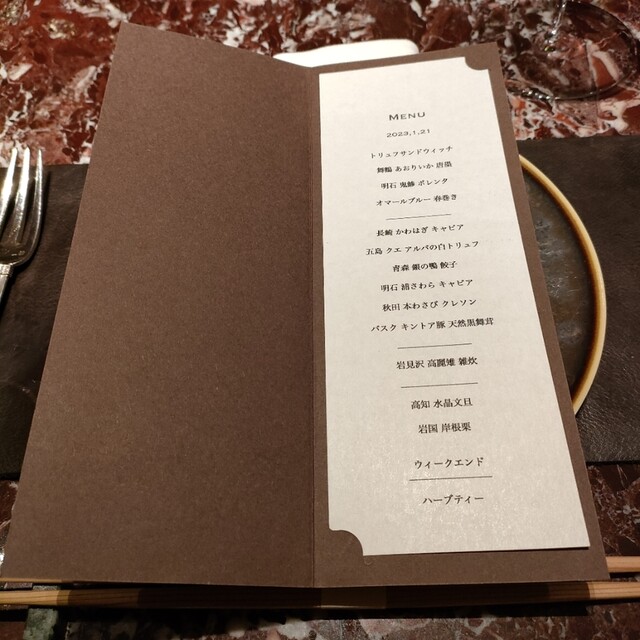 MENU
2023,1,21
トリュフサンドウィッチ
舞鶴 あおりいか 唐墨
明石 鬼鯵 ポレンタ
オマールブルー 春巻き
長崎 かわはぎ キャビア
五島 クエ アルバの白トリュフ
青森 銀の鴨 餃子
明石 浦さわら キャビア
秋田 本わさび クレソン
バスク キントア豚 天然黒舞茸
岩見沢 高麗雉 雑炊
高知 水晶文旦
岩国 岸根栗
ウィークエンド
ハーブティー